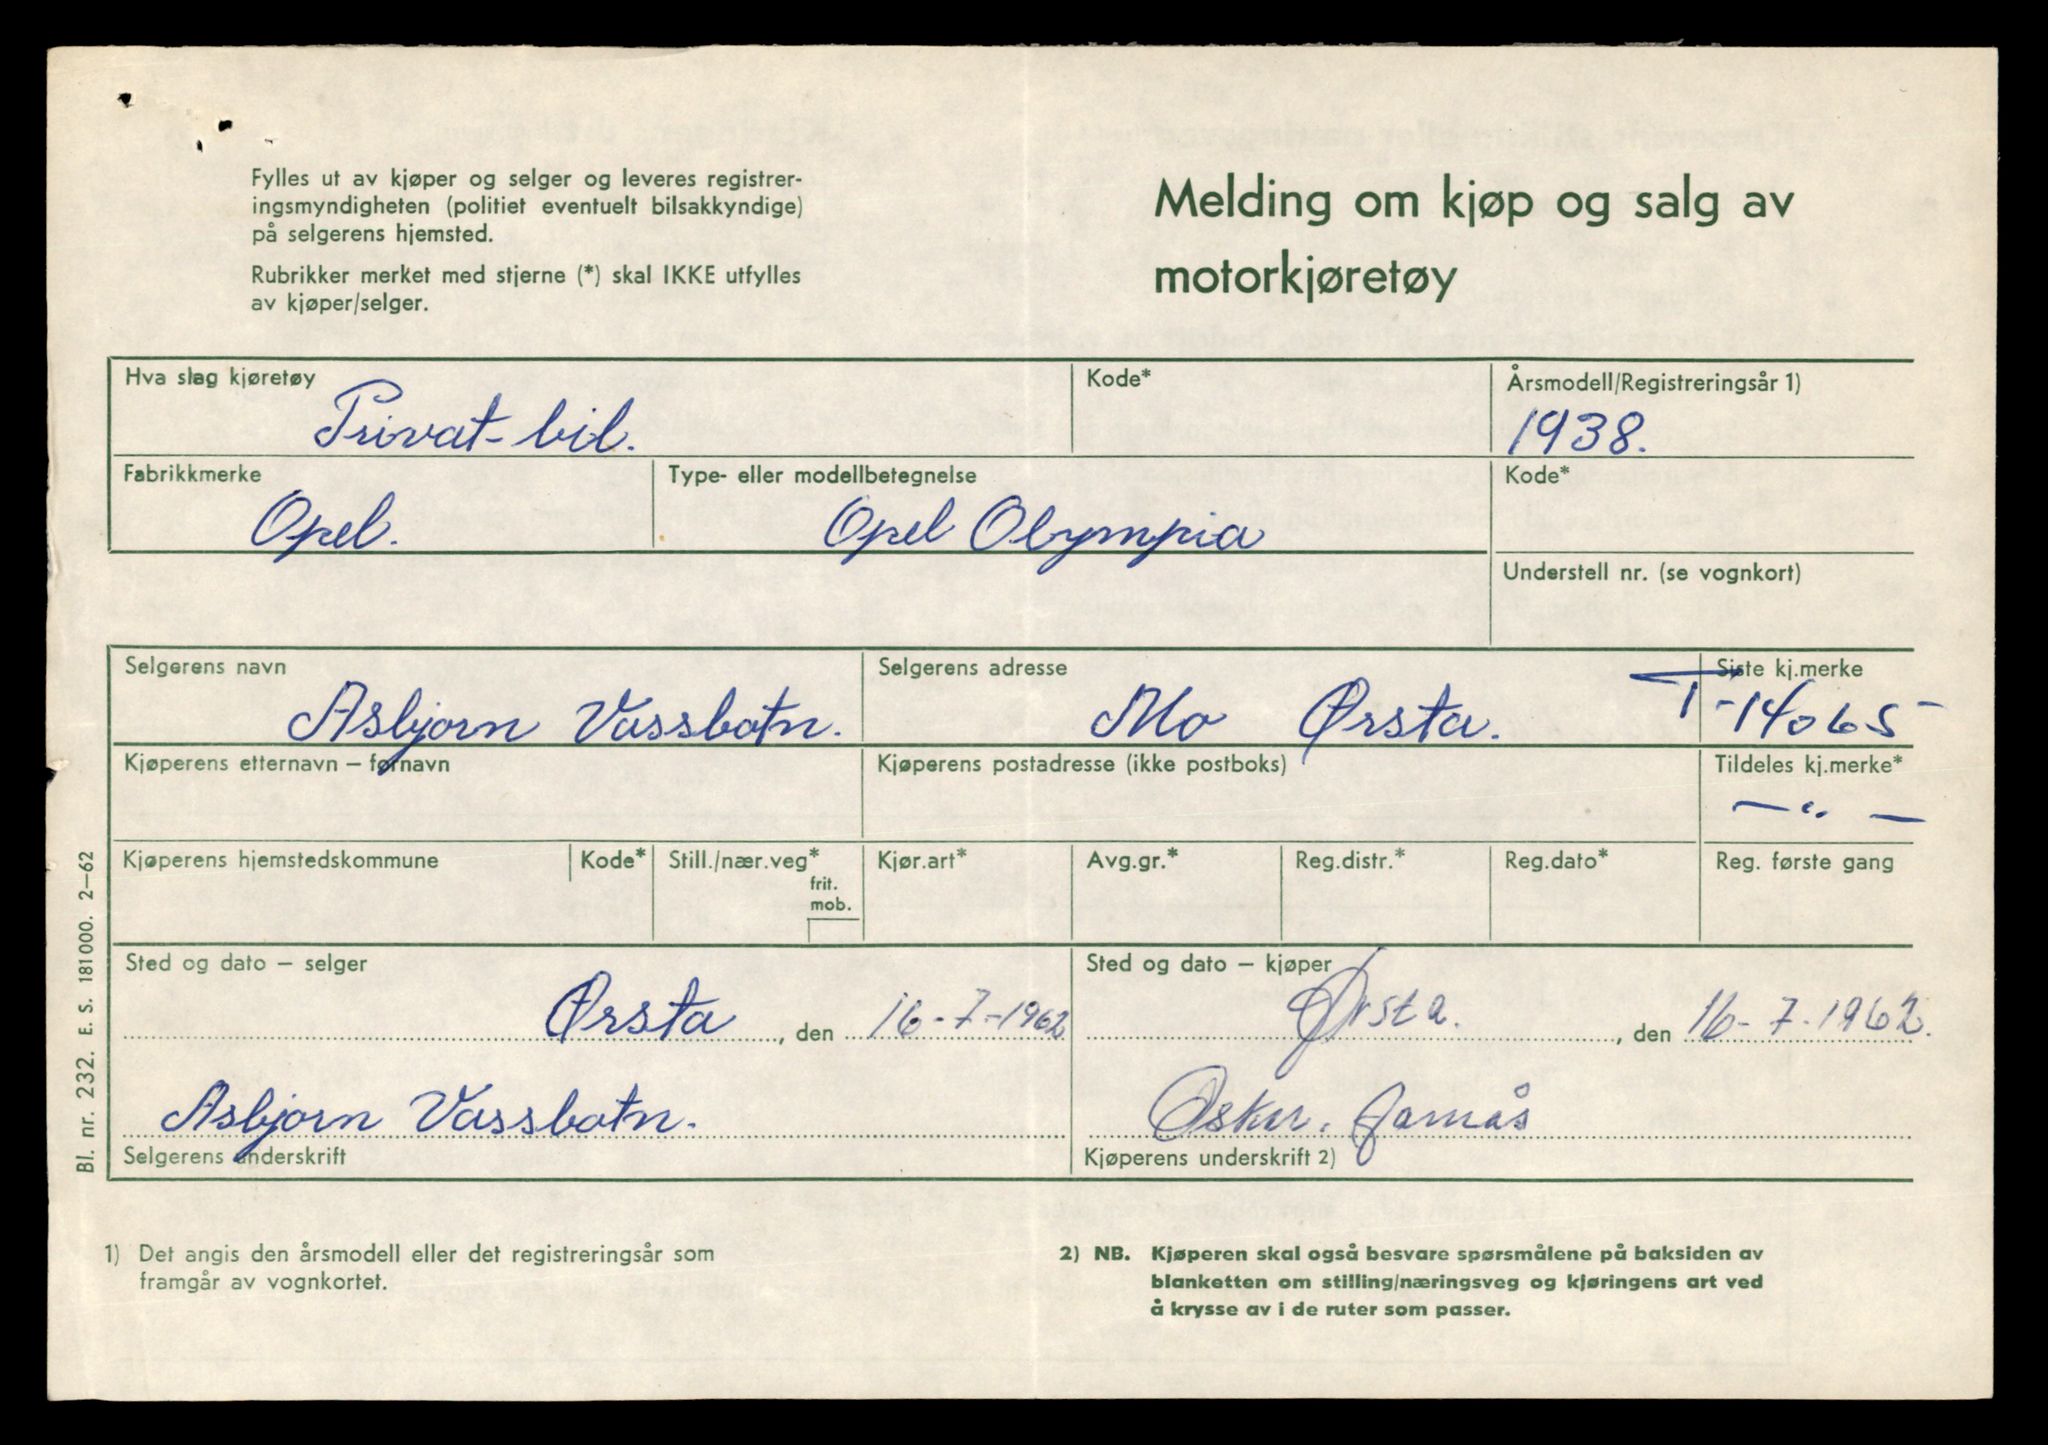 Fylles ut av kjøper og selger og leveres registrer-
ingsmyndigheten (politiet eventuelt bilsakkyndige)
på selgerens hjemsted.
Rubrikker merket med stjerne (*) skal IKKE utfylles
av kjøper/selger.
Melding om kjøp og salg av
motorkjøretøy
Hva slag kjøretøy
Privat-bil.
Kode*
Årsmodell/Registreringsår 1)
1938.
Fabrikkmerke
Opel.
Type- eller modellbetegnelse
Opel Olympia
Kode*
Understell nr. (se vognkort)
Selgerens navn
Asbjorn Vassbotn.
Selgerens adresse
Mo Ørsta.
Siste kj.merke
T-14065-
Kjøperens etternavn – fornavn
Kjøperens postadresse (ikke postboks)
Tildeles kj.merke*
— " —
Kjøperens hjemstedskommune
Kode*
Still./nær.veg*
frit.
mob.
Kjør.art*
Avg.gr.*
Reg.distr.*
Reg.dato*
Reg. første gang
Sted og dato – selger
Ørsta, den 16-7-1962
Sted og dato – kjøper
Ørsta., den 16-7-1962.
Asbjorn Vassbotn.
Selgerens underskrift
Oskar. Jamnås
Kjøperens underskrift 2)
Bl. nr. 232. E. S. 181000. 2–62
1) Det angis den årsmodell eller det registreringsår som
framgår av vognkortet.
2) NB. Kjøperen skal også besvare spørsmålene på baksiden av
blanketten om stilling/næringsveg og kjøringens art ved
å krysse av i de ruter som passer.